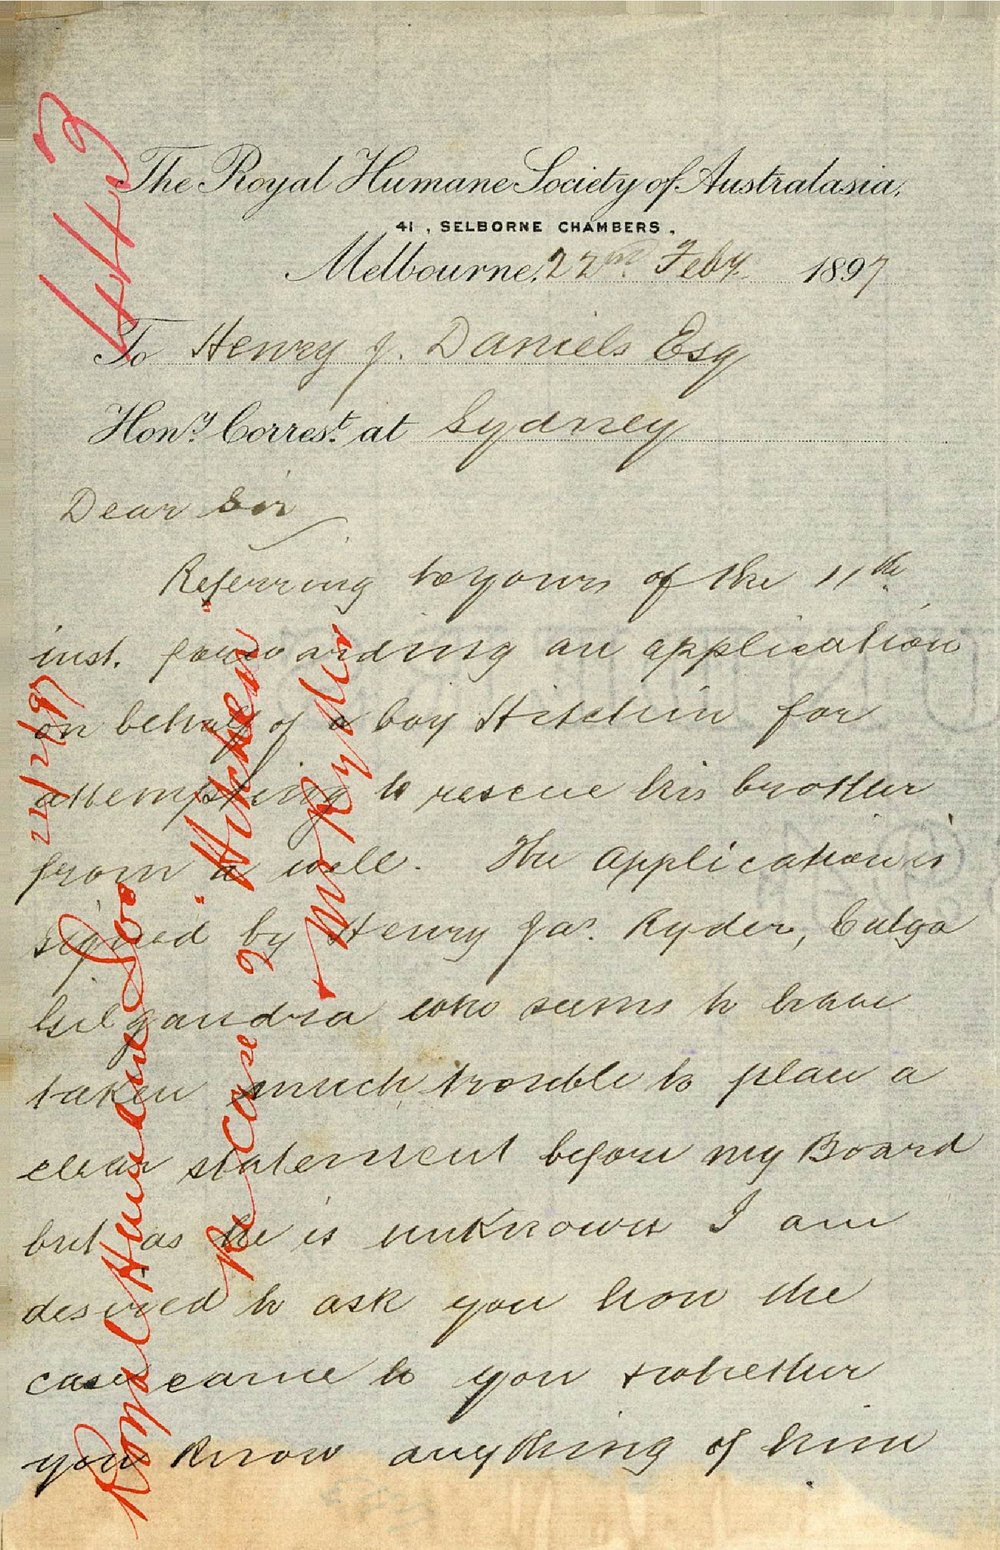 443
The Royal Humane Society of Australasia,
41, SELBORNE CHAMBERS.
Melbourne, 22nd. Feby. 1897
To Henry J. Daniels Esq
Hony. Correst. at Sydney
Dear Sir
Referring to yours of the 11th
inst. forwarding an application
on behalf of a boy Hitchin for
attempting to rescue his brother
from a well. The application is
signed by Henry Jas. Ryder, Culga
Gilgandra who seems to have
taken much trouble to place a
clear statement before my Board
but as he is unknown I am
desired to ask you how the
case came to you & whether
you know anything of him
24/2/97
Royal Humane Soc
Re Case of "Hitchen"
Mr Ryder